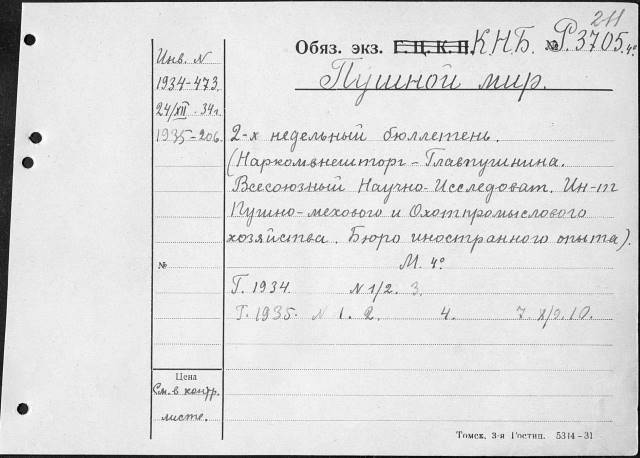 211
Обяз. экз. Г. Ц. К. П. К.Н.Б. № Р.3705.4º
Пушной мир.
Инв. N
1934-473
24/XII-34г.
1935-206.
2-х недельный бюллетень.
(Наркомвнешторг - Главпушнина.
Всесоюзный Научно-Исследоват. Ин-т
Пушно-мехового и Охотпромыслового
хозяйства. Бюро иностранного опыта).
№
М. 4º
Г. 1934. N 1/2. 3.
Г. 1935. N 1. 2. 4. 7. 8/9. 10.
Цена
См. в контр.
листе.
Томск, 3-я Гостип. 5314-31